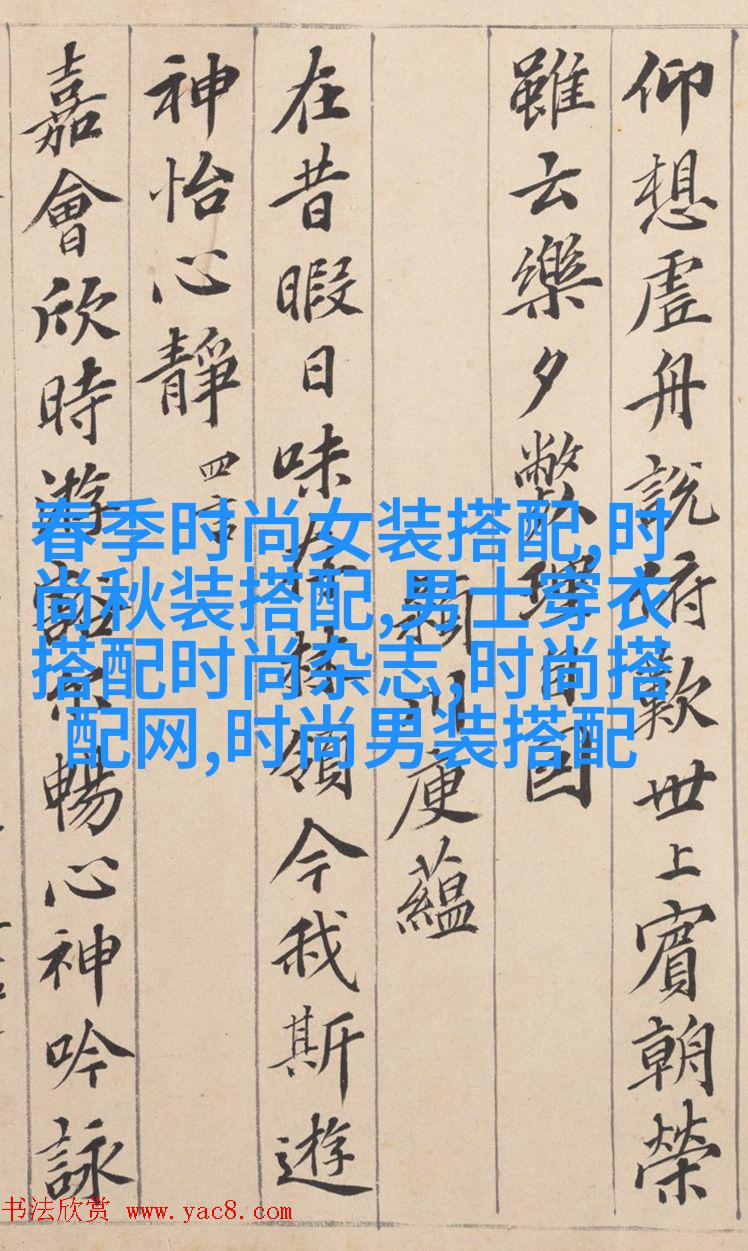 仰想虛舟說俯歎世上賓朝榮
雖云樂夕斃理自國
潁川庾蘊
在昔暇日味存林領今我斯遊
神怡心靜 四言
嘉會欣時游豁尔暢心神吟詠
春季时尚女装搭配,时
尚秋装搭配,男士穿衣
搭配时尚杂志,时尚搭
配网,时尚男装搭配
书法欣赏 www.yac8.com